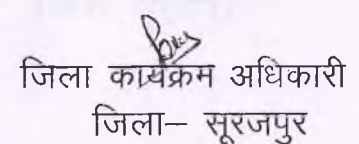 जिला कार्यक्रम अधिकारी
जिला– सूरजपुर